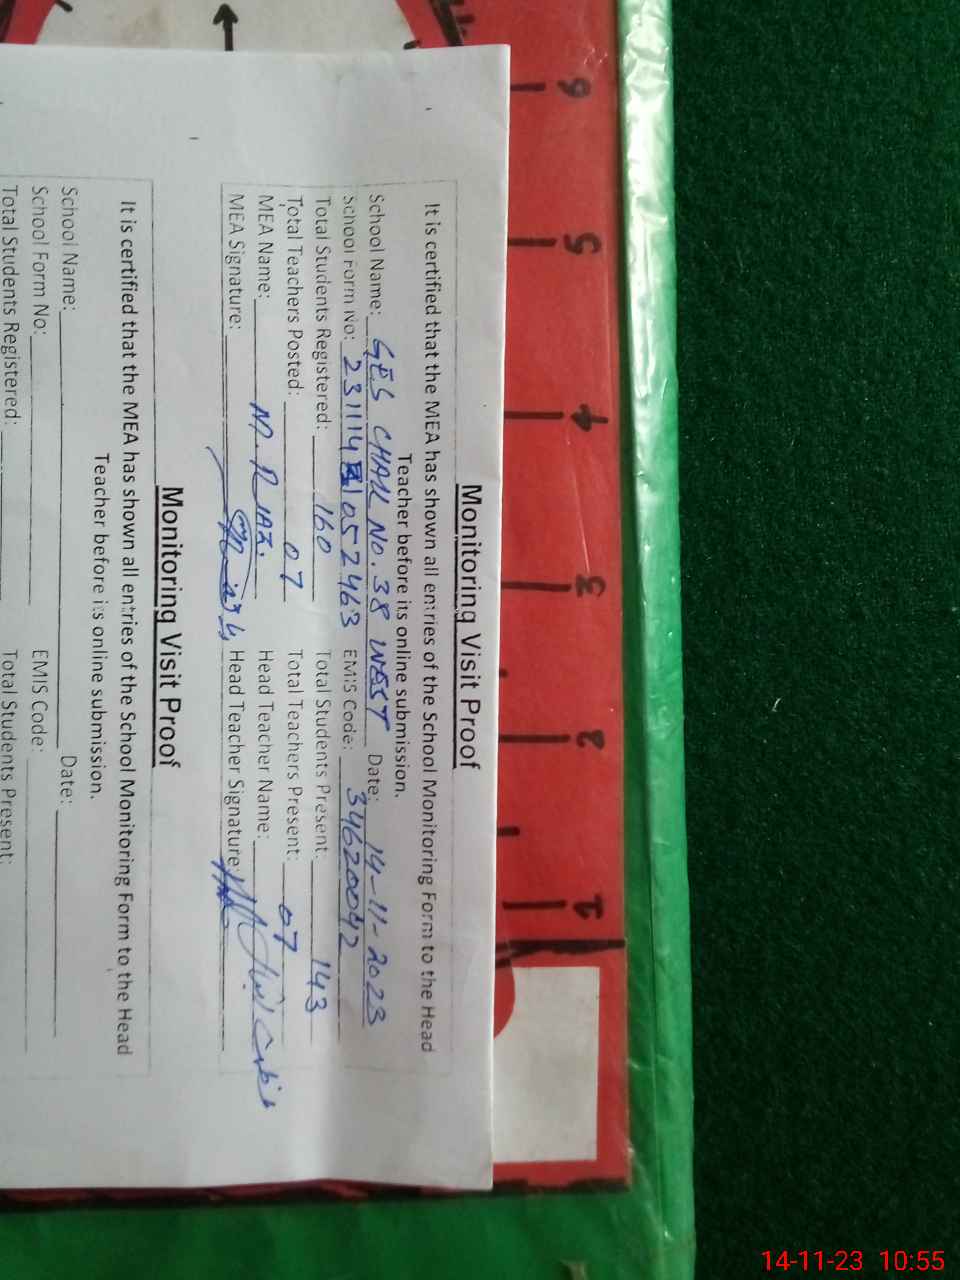 Monitoring Visit Proof
It is certified that the MEA has shown all entries of the School Monitoring Form to the Head
Teacher before its online submission.
School Name: GES CHAK NO. 38 WEST Date: 14-11-2023
School Form No: 231114 1052463 EMIS Code: 34620042
Total Students Registered: 160 Total Students Present: 143
Total Teachers Posted: 07 Total Teachers Present: 07
MEA Name: M. RIAZ. Head Teacher Name:
MEA Signature: Head Teacher Signature:
Monitoring Visit Proof
It is certified that the MEA has shown all entries of the School Monitoring Form to the Head
Teacher before its online submission.
School Name: Date:
School Form No: EMIS Code:
Total Students Registered: Total Students Present:
6
5
4
3
2
1
14-11-23 10:55